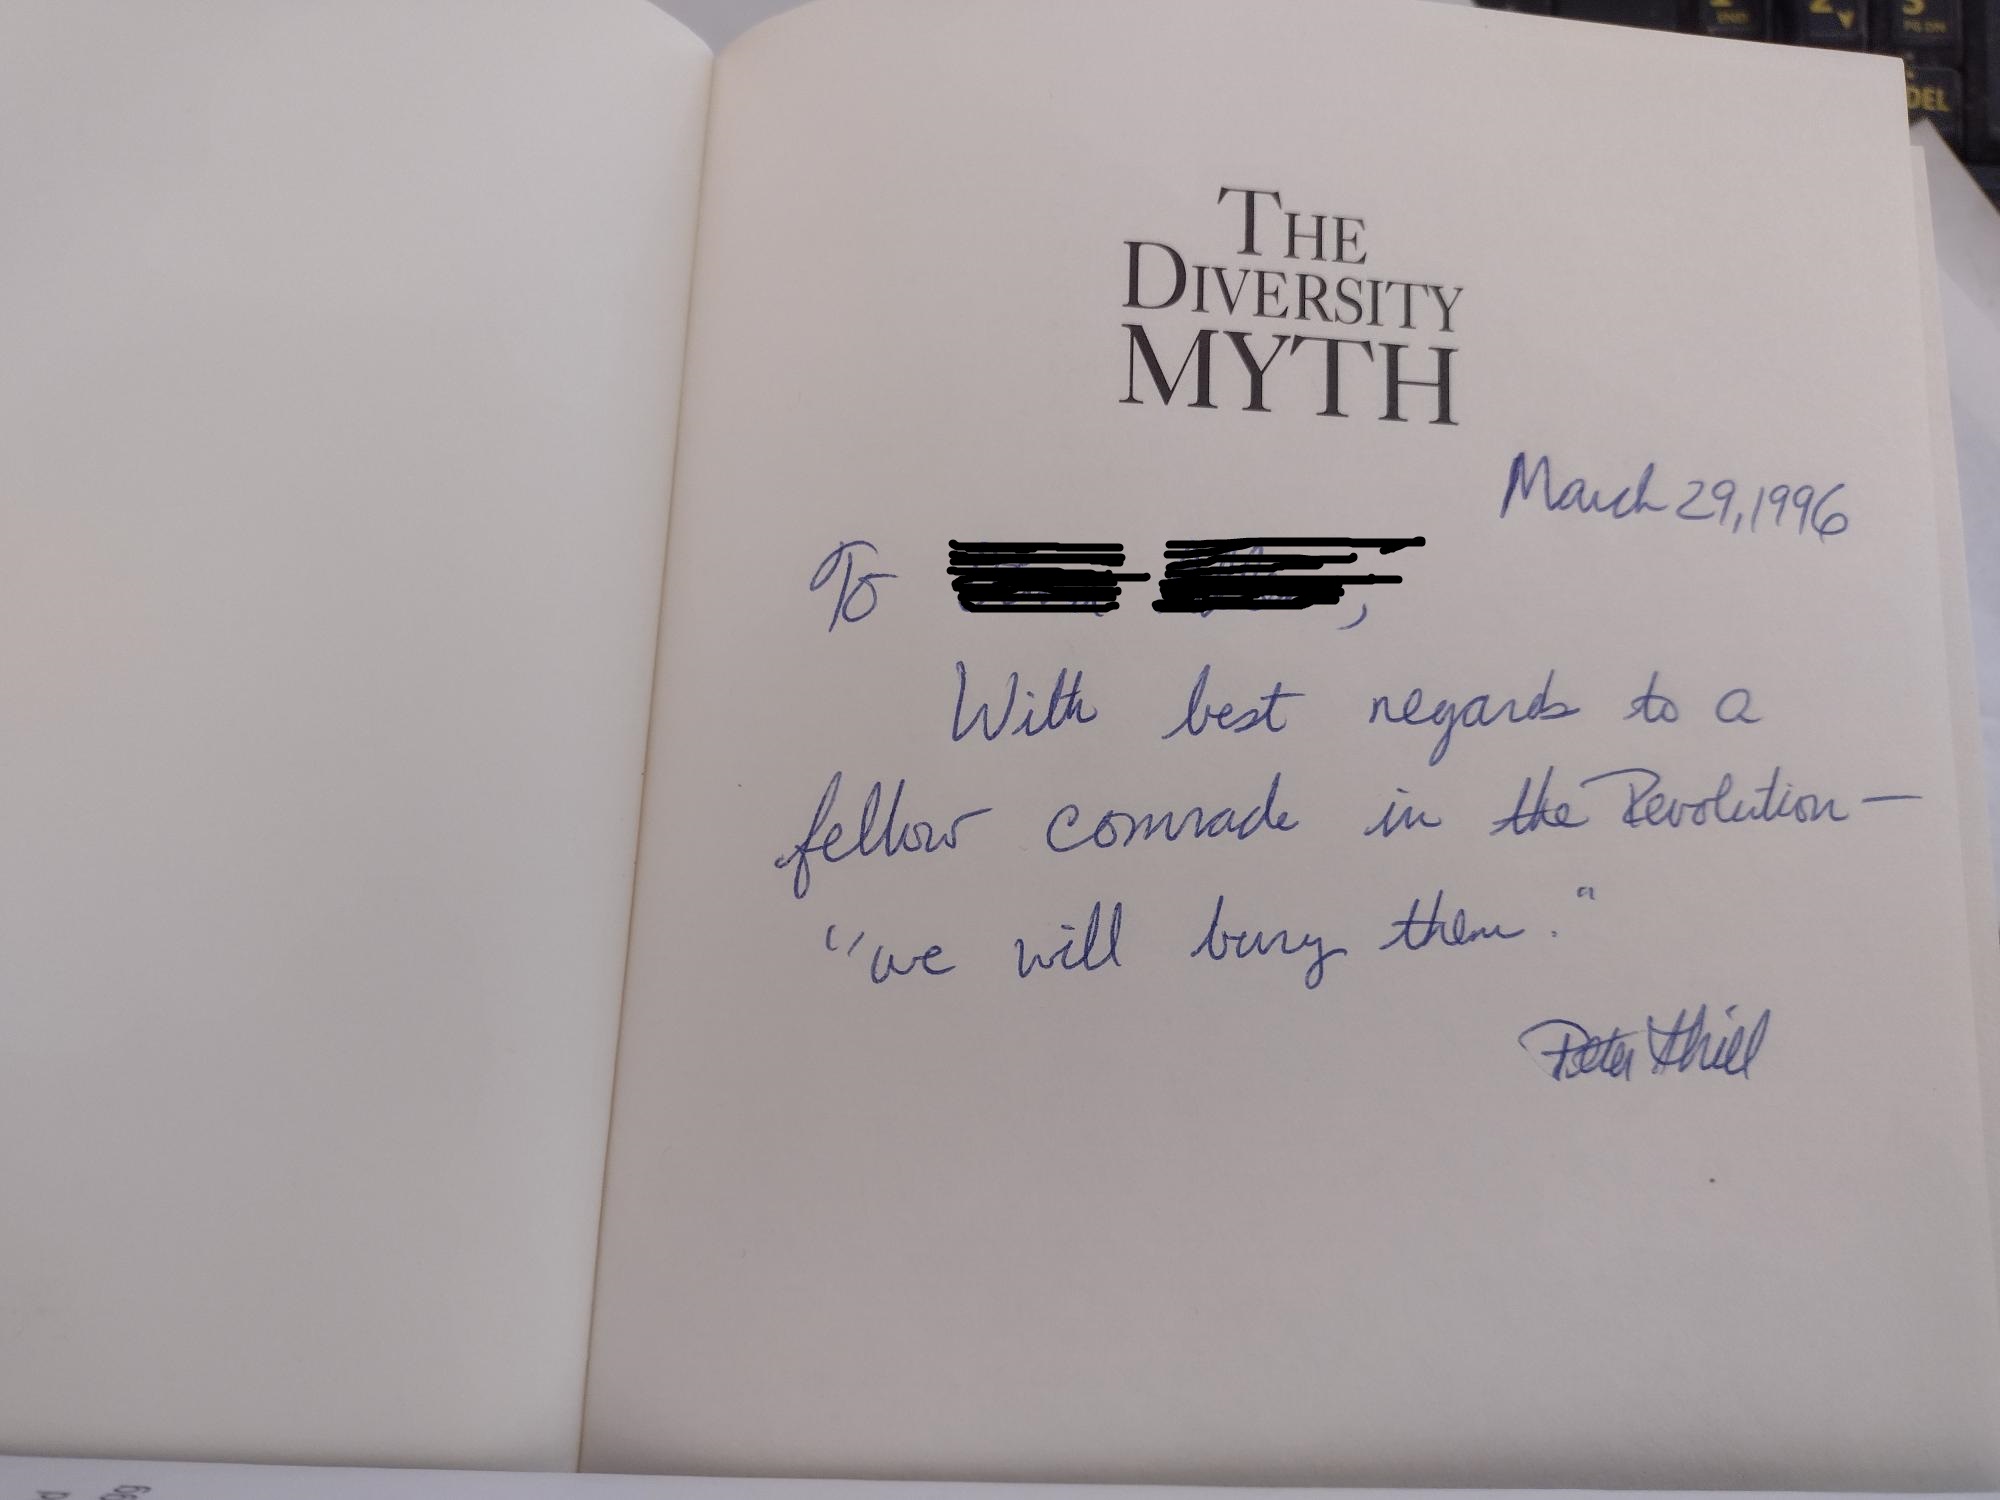 THE
DIVERSITY
MYTH
March 29, 1996
To
With best regards to a
fellow comrade in the Revolution—
"we will bury them."
Peter Thiel
DEL